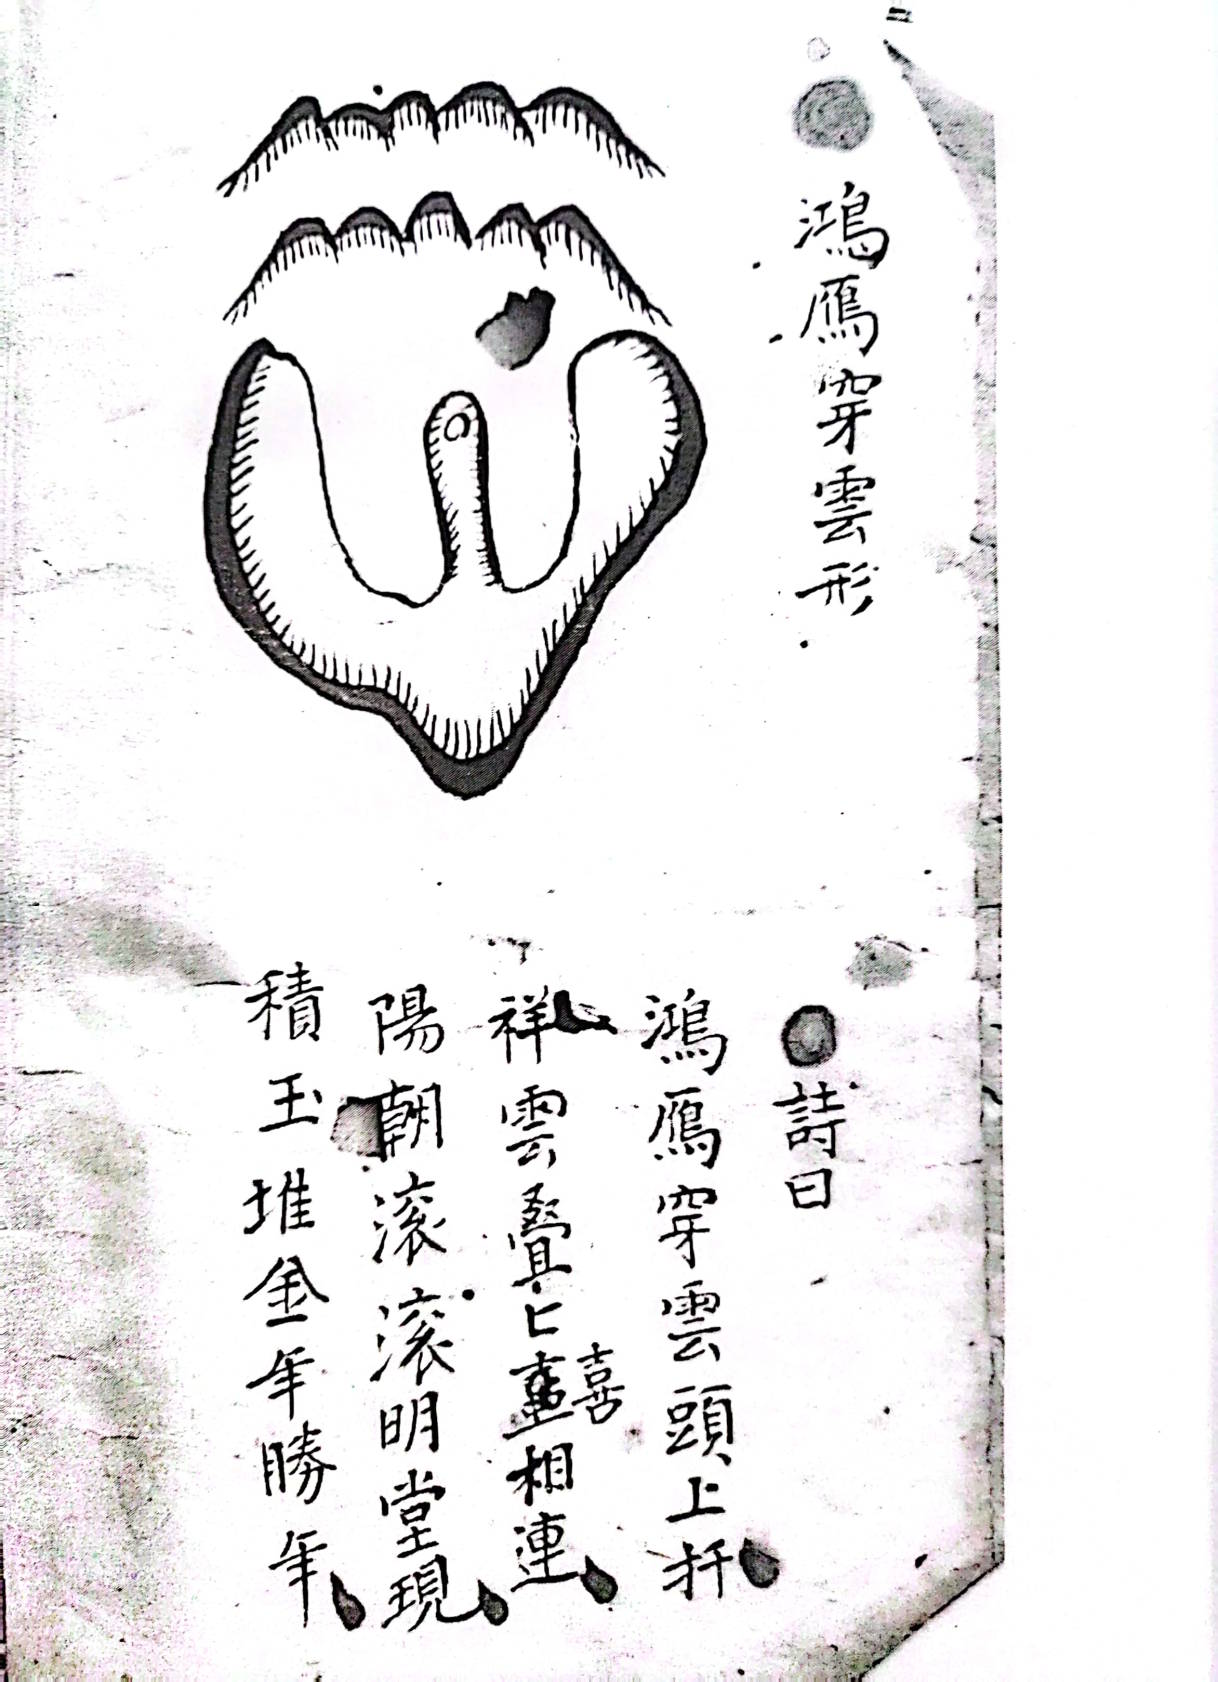 鴻鴈穿雲形
詩曰
鴻鴈穿雲頭上扦
祥雲疊〻畫喜相連
陽朝滚滚明堂現
積玉堆金年勝年